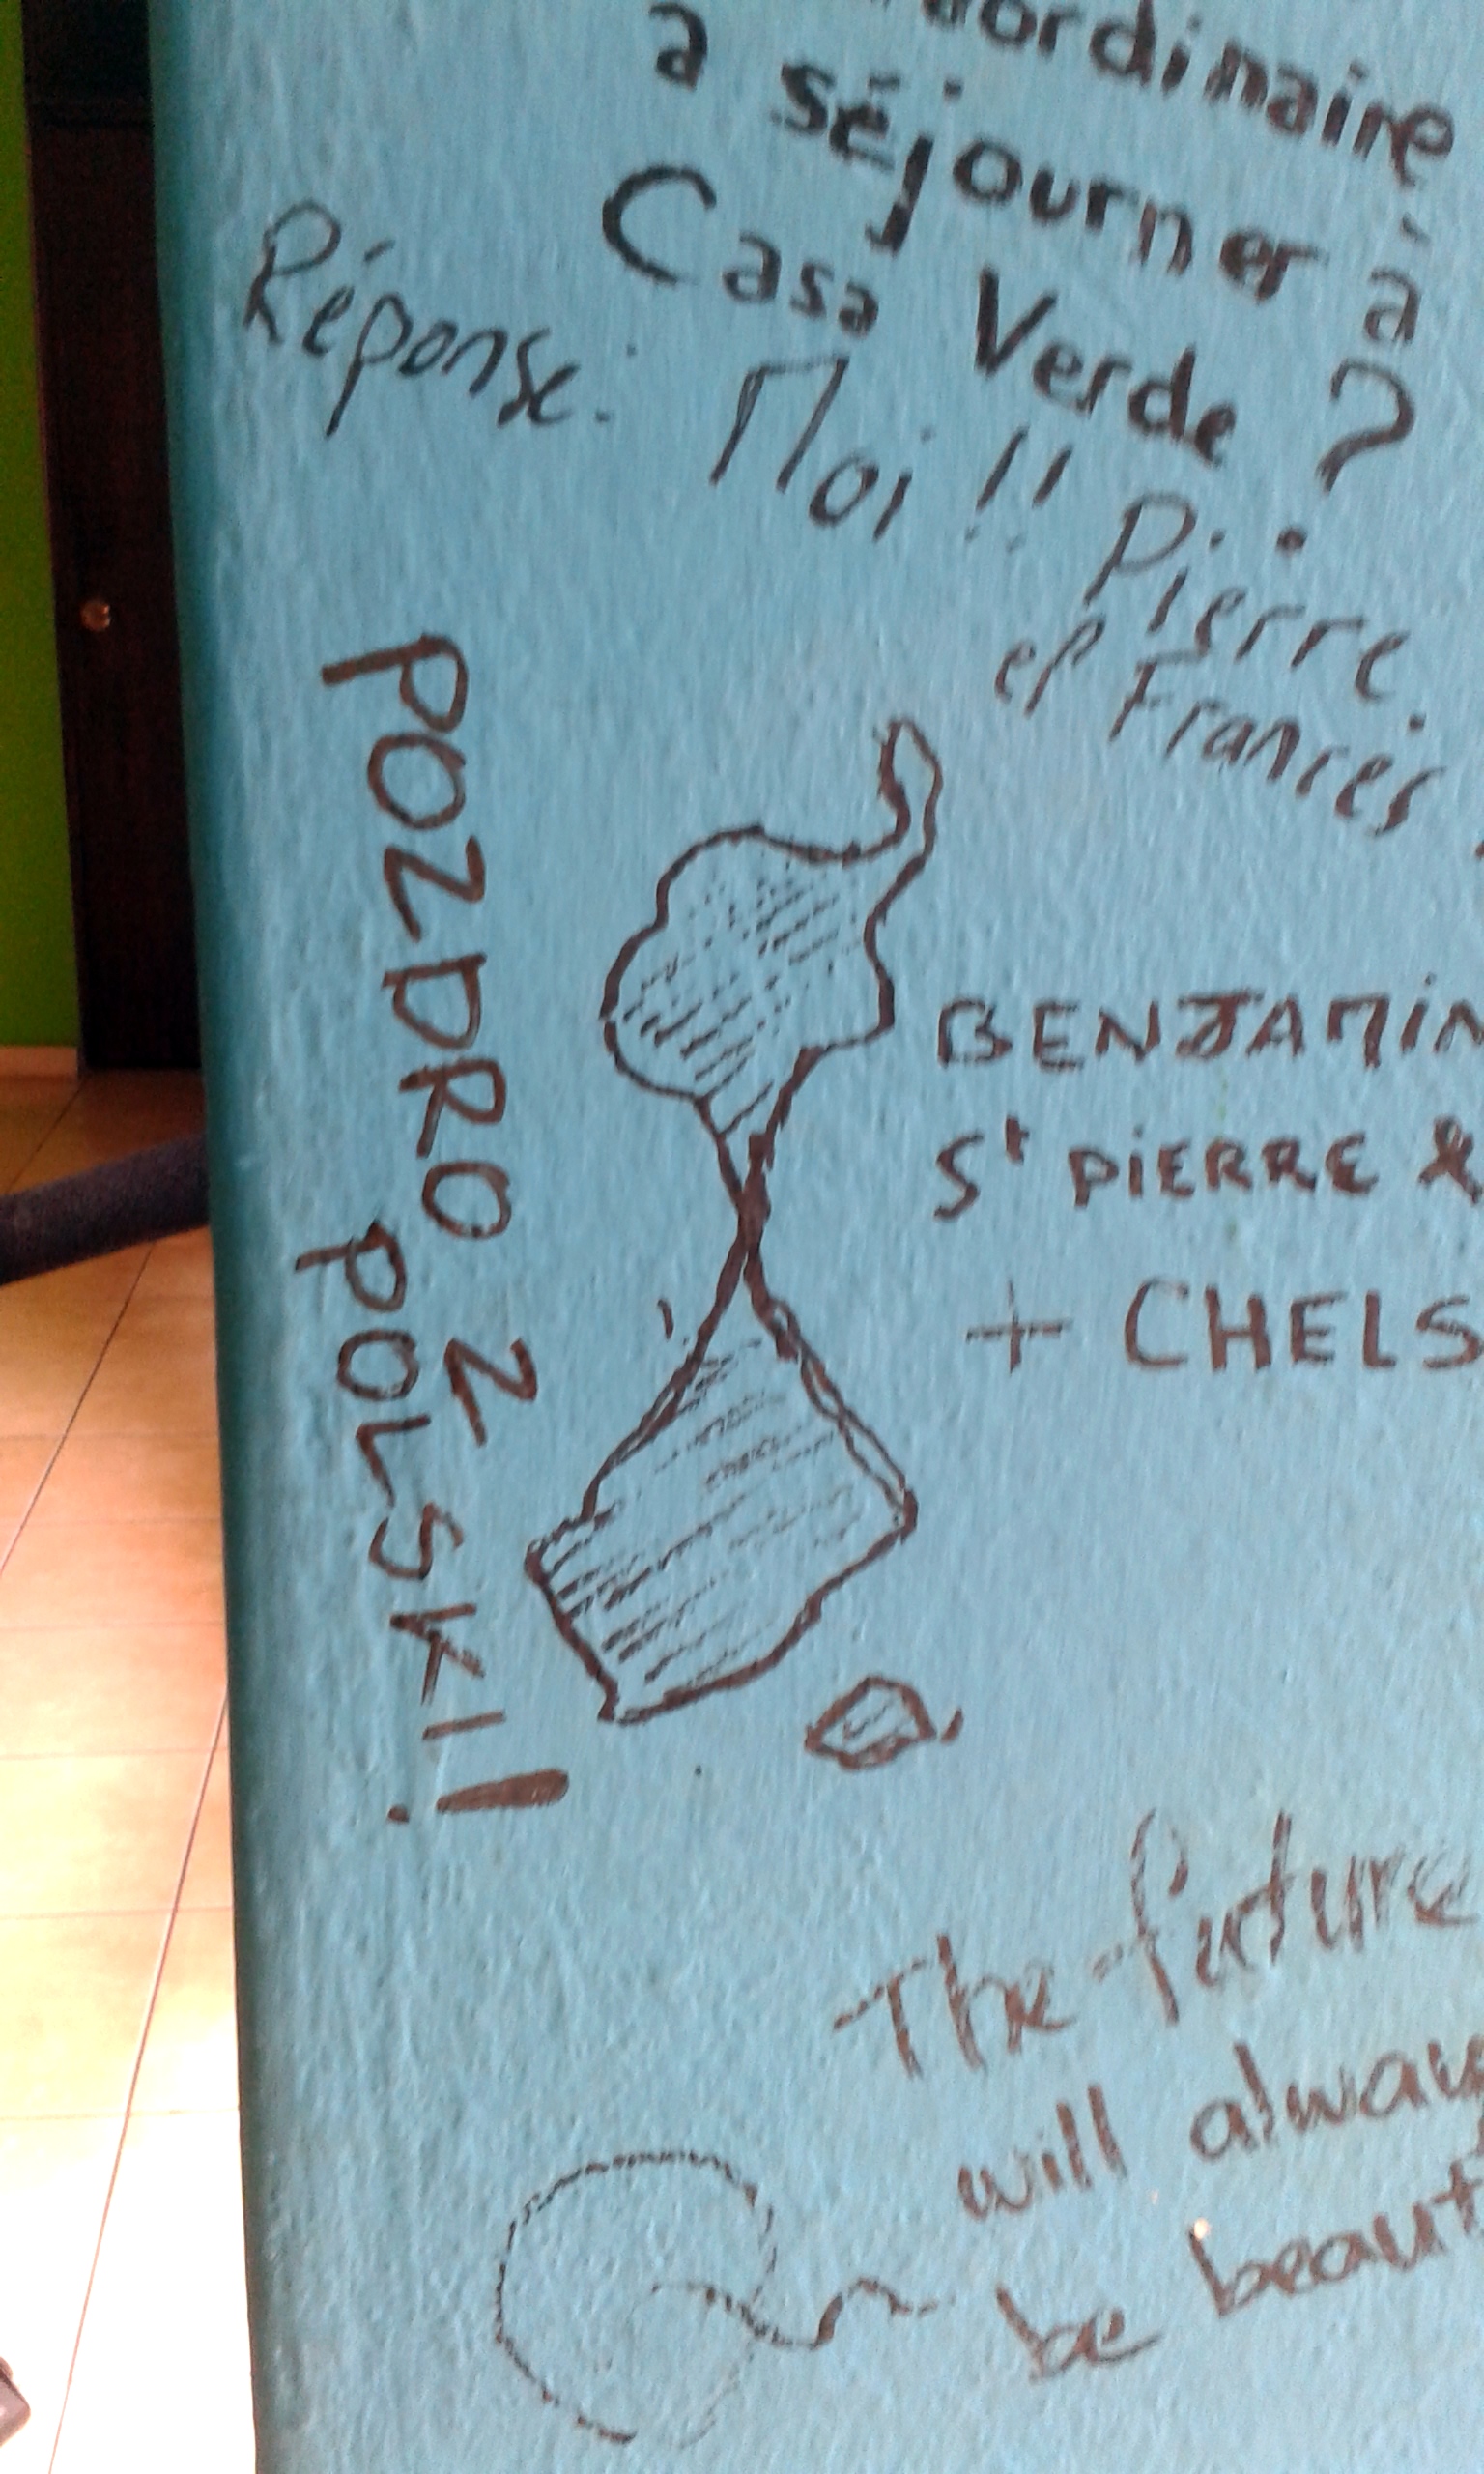 ordinaire
a séjourner à
Casa Verde ?
Réponse: Moi !! Pierre
et Francis
POZDRO Z
POLSKI!
BENJAMIN
St PIERRE &
+ CHELS
The future
will always
be beaut